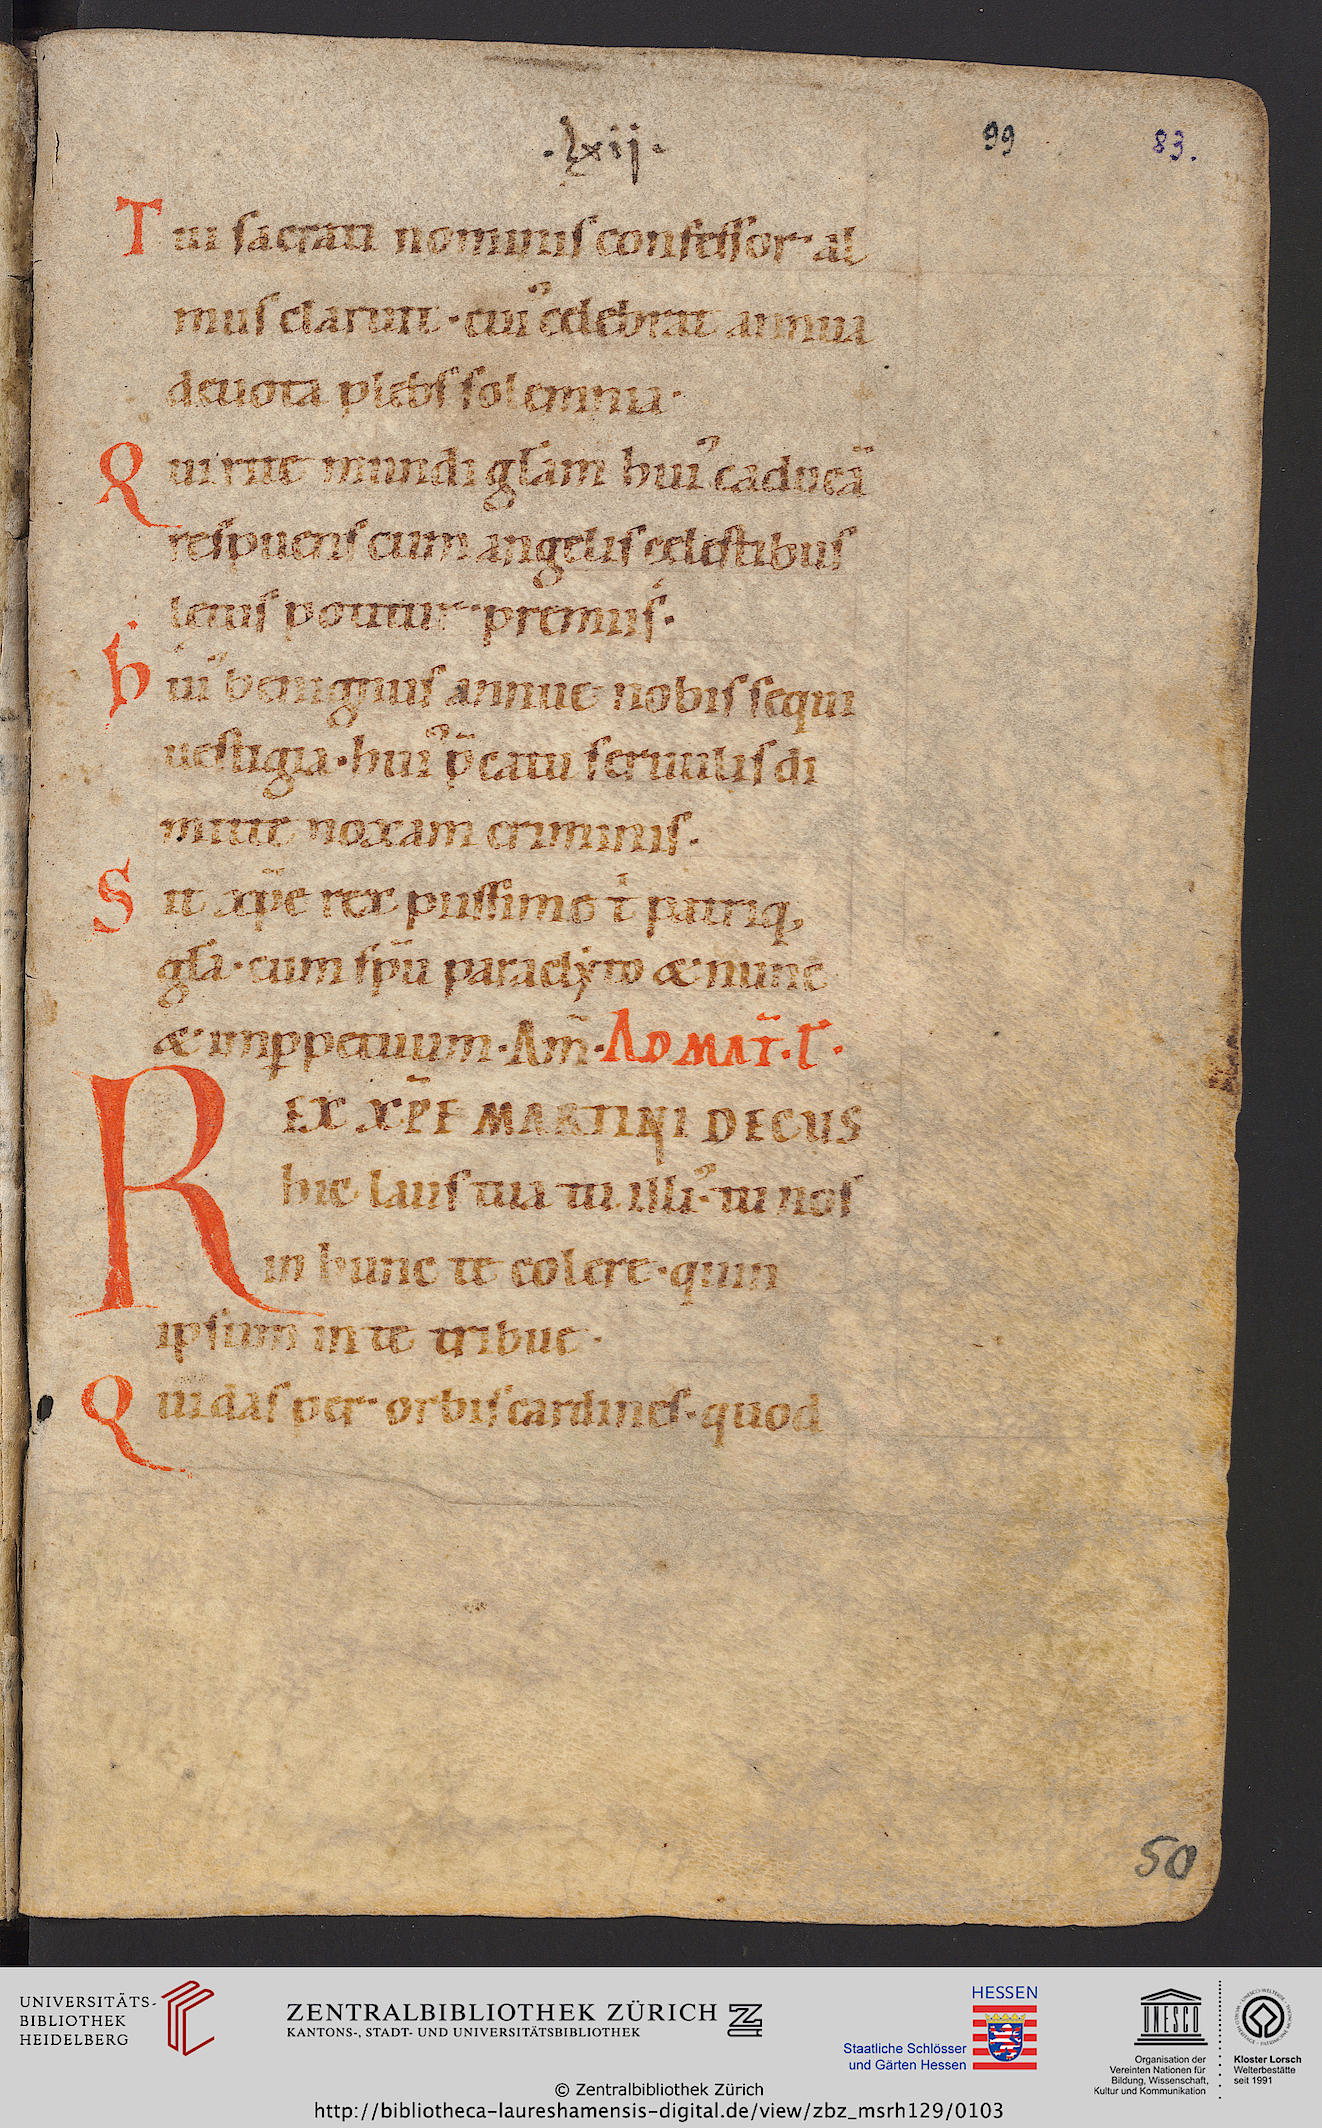 ·lxii·
99
83.
Tui sacrati nominis confessor· al
mus claruit· cui᾽ celebrat annua
deuota plebs solemnia·
Qui rite mundi gl̄am hui᾽ caducā
respuens cum angelis celestibus
letus potitur· premiis·
Hui᾽ benignus annue nobis sequi
uestigia· hui᾽ p̄catu seruulis di
mitte noxam criminis·
Sit xp̄e rex piissime t̄ patriq,
gl̄a· cum sp̄u paraclyto & nunc
& inꝑpetuum· Am̄· AD MAT̄· L·
REX XP̄E MARTINI DECUS
hic laus tua tu illi᾽· tu nos
in hunc te colere· quin
ipsum in te tribue·
Qui das per orbis cardines· quod
50
UNIVERSITÄTS-
BIBLIOTHEK
HEIDELBERG
ZENTRALBIBLIOTHEK ZÜRICH
KANTONS-, STADT- UND UNIVERSITÄTSBIBLIOTHEK
HESSEN
Staatliche Schlösser
und Gärten Hessen
UNESCO
Organisation der
Vereinten Nationen für
Bildung, Wissenschaft,
Kultur und Kommunikation
Kloster Lorsch
Welterbestätte
seit 1991
© Zentralbibliothek Zürich
http://bibliotheca-laureshamensis-digital.de/view/zbz_msrh129/0103